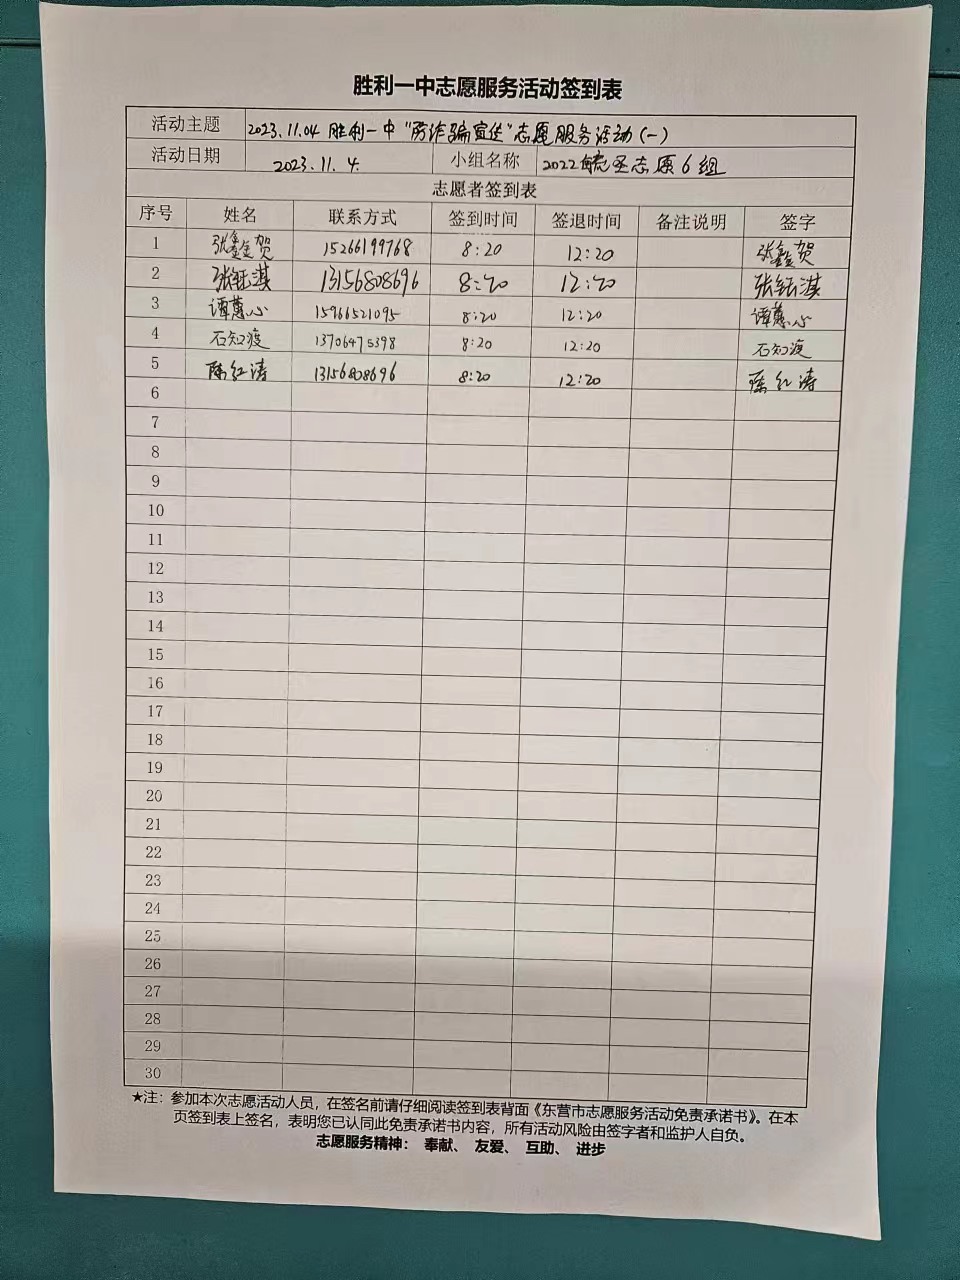 胜利一中志愿服务活动签到表
活动主题 2023.11.04 胜利一中"防诈骗宣传"志愿服务活动(一)
活动日期 2023.11.4. 小组名称 2022 志愿6组
志愿者签到表
序号 姓名 联系方式 签到时间 签退时间 备注说明 签字
1 张鑫贺 15266199768 8:20 12:20 张鑫贺
2 张钰淇 13156808696 8:20 12:20 张钰淇
3 谭蕙心 15966521095 8:20 12:20 谭蕙心
4 石知渡 13706475398 8:20 12:20 石知渡
5 陈红涛 13156808696 8:20 12:20 陈红涛
6
7
8
9
10
11
12
13
14
15
16
17
18
19
20
21
22
23
24
25
26
27
28
29
30
★注：参加本次志愿活动人员，在签名前请仔细阅读签到表背面《东营市志愿服务活动免责承诺书》。在本
页签到表上签名，表明您已认同此免责承诺书内容，所有活动风险由签字者和监护人自负。
志愿服务精神： 奉献、 友爱、 互助、 进步